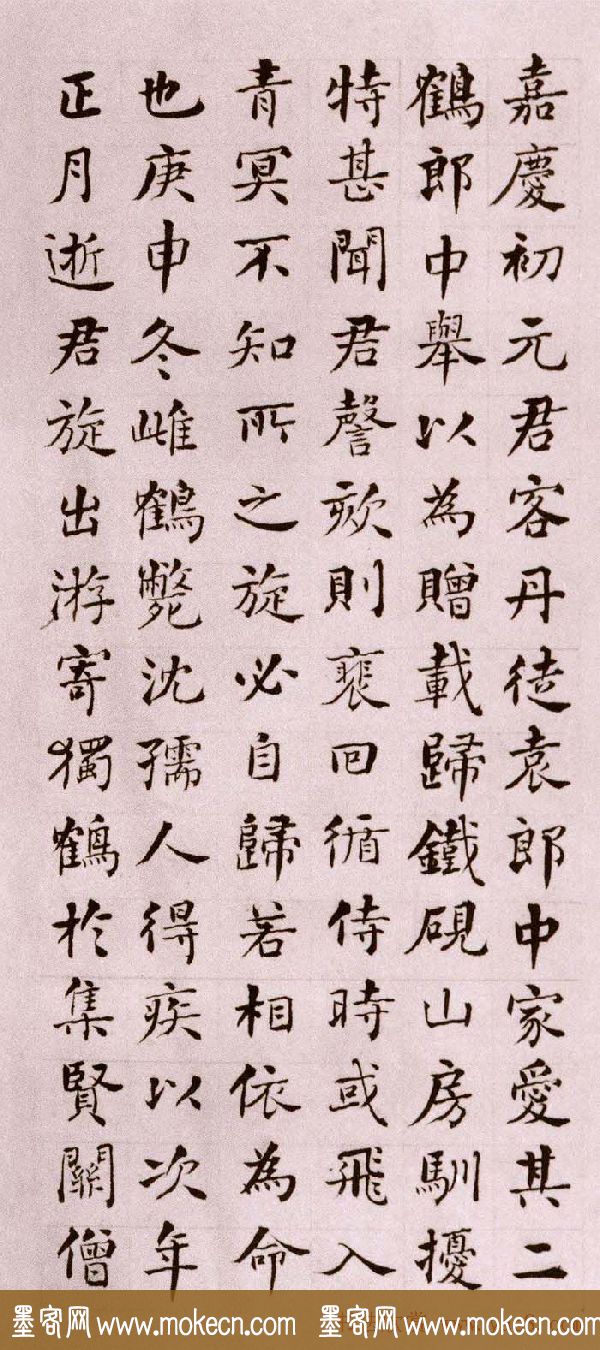 嘉慶初元君客丹徒袁郎中家愛其二
鶴郎中舉以為贈載歸鐵硯山房馴擾
特甚聞君謦欬則裵回循侍時或飛入
青冥不知所之旋必自歸若相依為命
也庚申冬雌鶴斃沈孺人得疾以次年
正月逝君旋出游寄獨鶴於集賢關僧
墨客网 www.mokecn.com 墨客网 www.mokecn.com